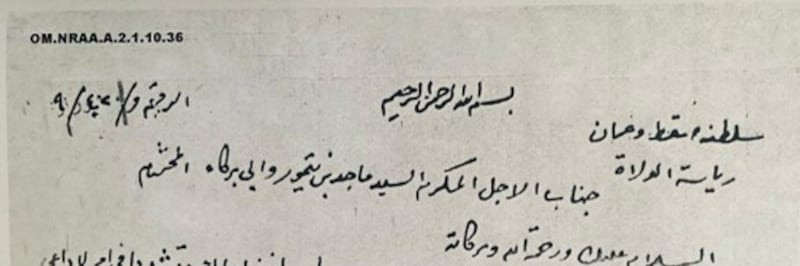 OM.NRAA.A.2.1.10.36
بسم الله الرحمن الرحيم
سلطنة مسقط وعمان
رياسة الولاة
جناب الاجل المكرم السيد ماجد بن تيمور والي بركاء المحترم
السلام عليك ورحمة الله وبركاته